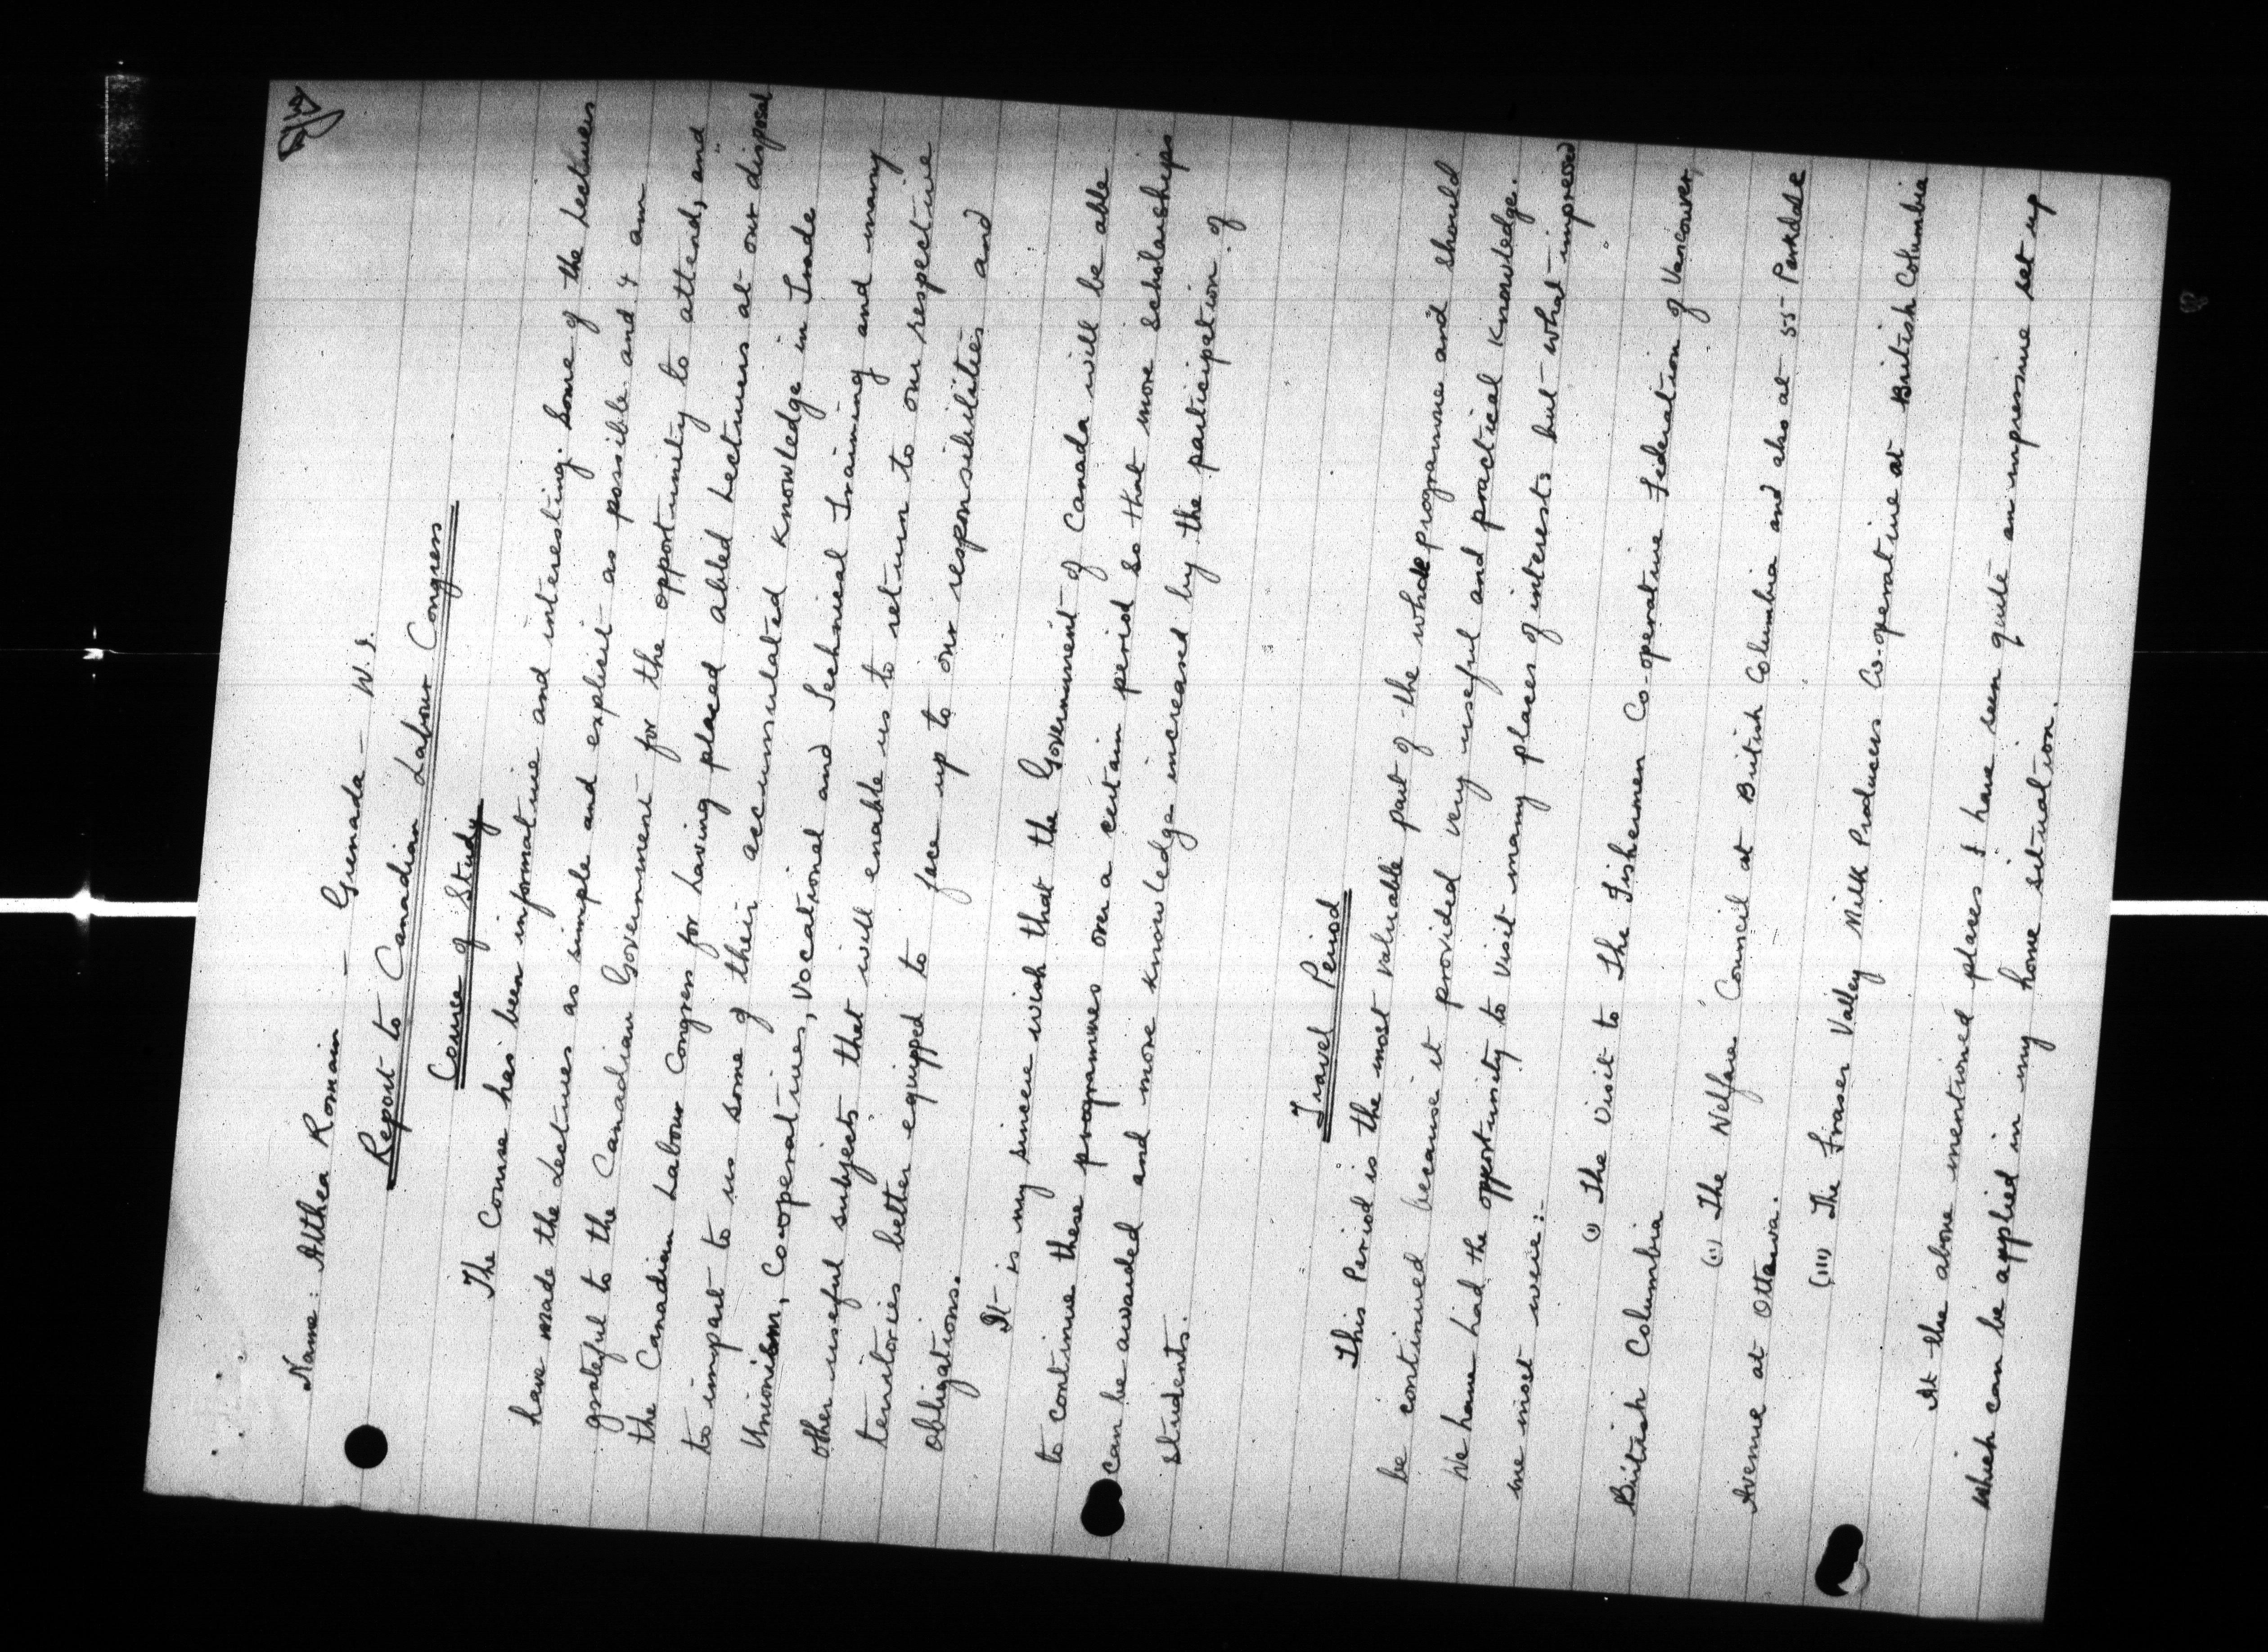 Name: Althea Romain - Grenada - W.I.
Report to Canadian Labour Congress
Course of Study
The Course has been informative and interesting. Some of the Lecturers
have made the Lectures as simple and explicit as possible and I am
grateful to the Canadian Government for the opportunity to attend, and
the Canadian Labour Congress for having placed abled Lecturers at our disposal
to impart to us some of their accumulated knowledge in Trade
Unionism, Co-operatives, Vocational and Technical Training and many
other useful subjects that will enable us to return to our respective
territories better equipped to face up to our responsibilities and
obligations.
It is my sincere wish that the Government of Canada will be able
to continue these programmes over a certain period so that more scholarships
can be awarded and more knowledge increased by the participation of
students.
Travel Period
This Period is the most valuable part of the whole programme and should
be continued because it provided very useful and practical knowledge.
We have had the opportunity to visit many places of interests but what impressed
me most were:-
(i) The visit to the Fishermen Co-operative Federation of Vancouver,
British Columbia
(ii) The Welfare Council at British Columbia and also at 55 Parkdale
Avenue at Ottawa.
(iii) The Fraser Valley Milk Producers Co-operative at British Columbia
At the above mentioned places I have seen quite an impressive set up
which can be applied in my home situation.